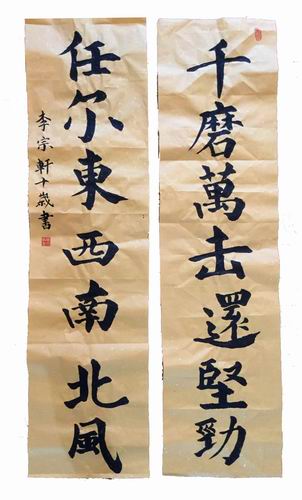 千磨萬击還堅勁
任尔東西南北風
李宗軒十歲書